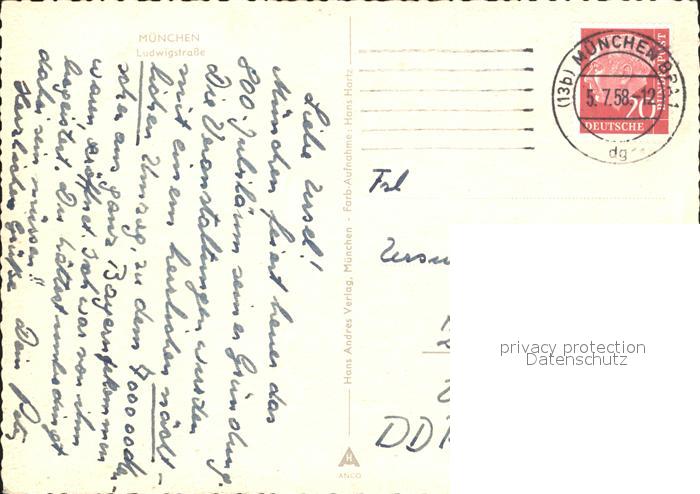 MÜNCHEN
Ludwigstraße
Liebe Ursel!
München feiert heuer das
800. Jubiläum seiner Gründung.
Die Veranstaltungen wurden
mit einem herrlichen nächt-
lichen Umzug, zu dem
aus ganz Bayern gekommen
waren, eröffnet. Ich war von ihm
begeistert. Du hättest unbedingt
dabei sein müssen!!
Herzliche Grüße Dein
Hans Andres Verlag, München - Farb-Aufnahme: Hans Hartz
ANCO
(13b) MÜNCHEN BPA 1
5.7.58.-12
dg
20
DEUTSCHE
BUNDESPOST
Frl
Ursu
DDR
privacy protection
Datenschutz